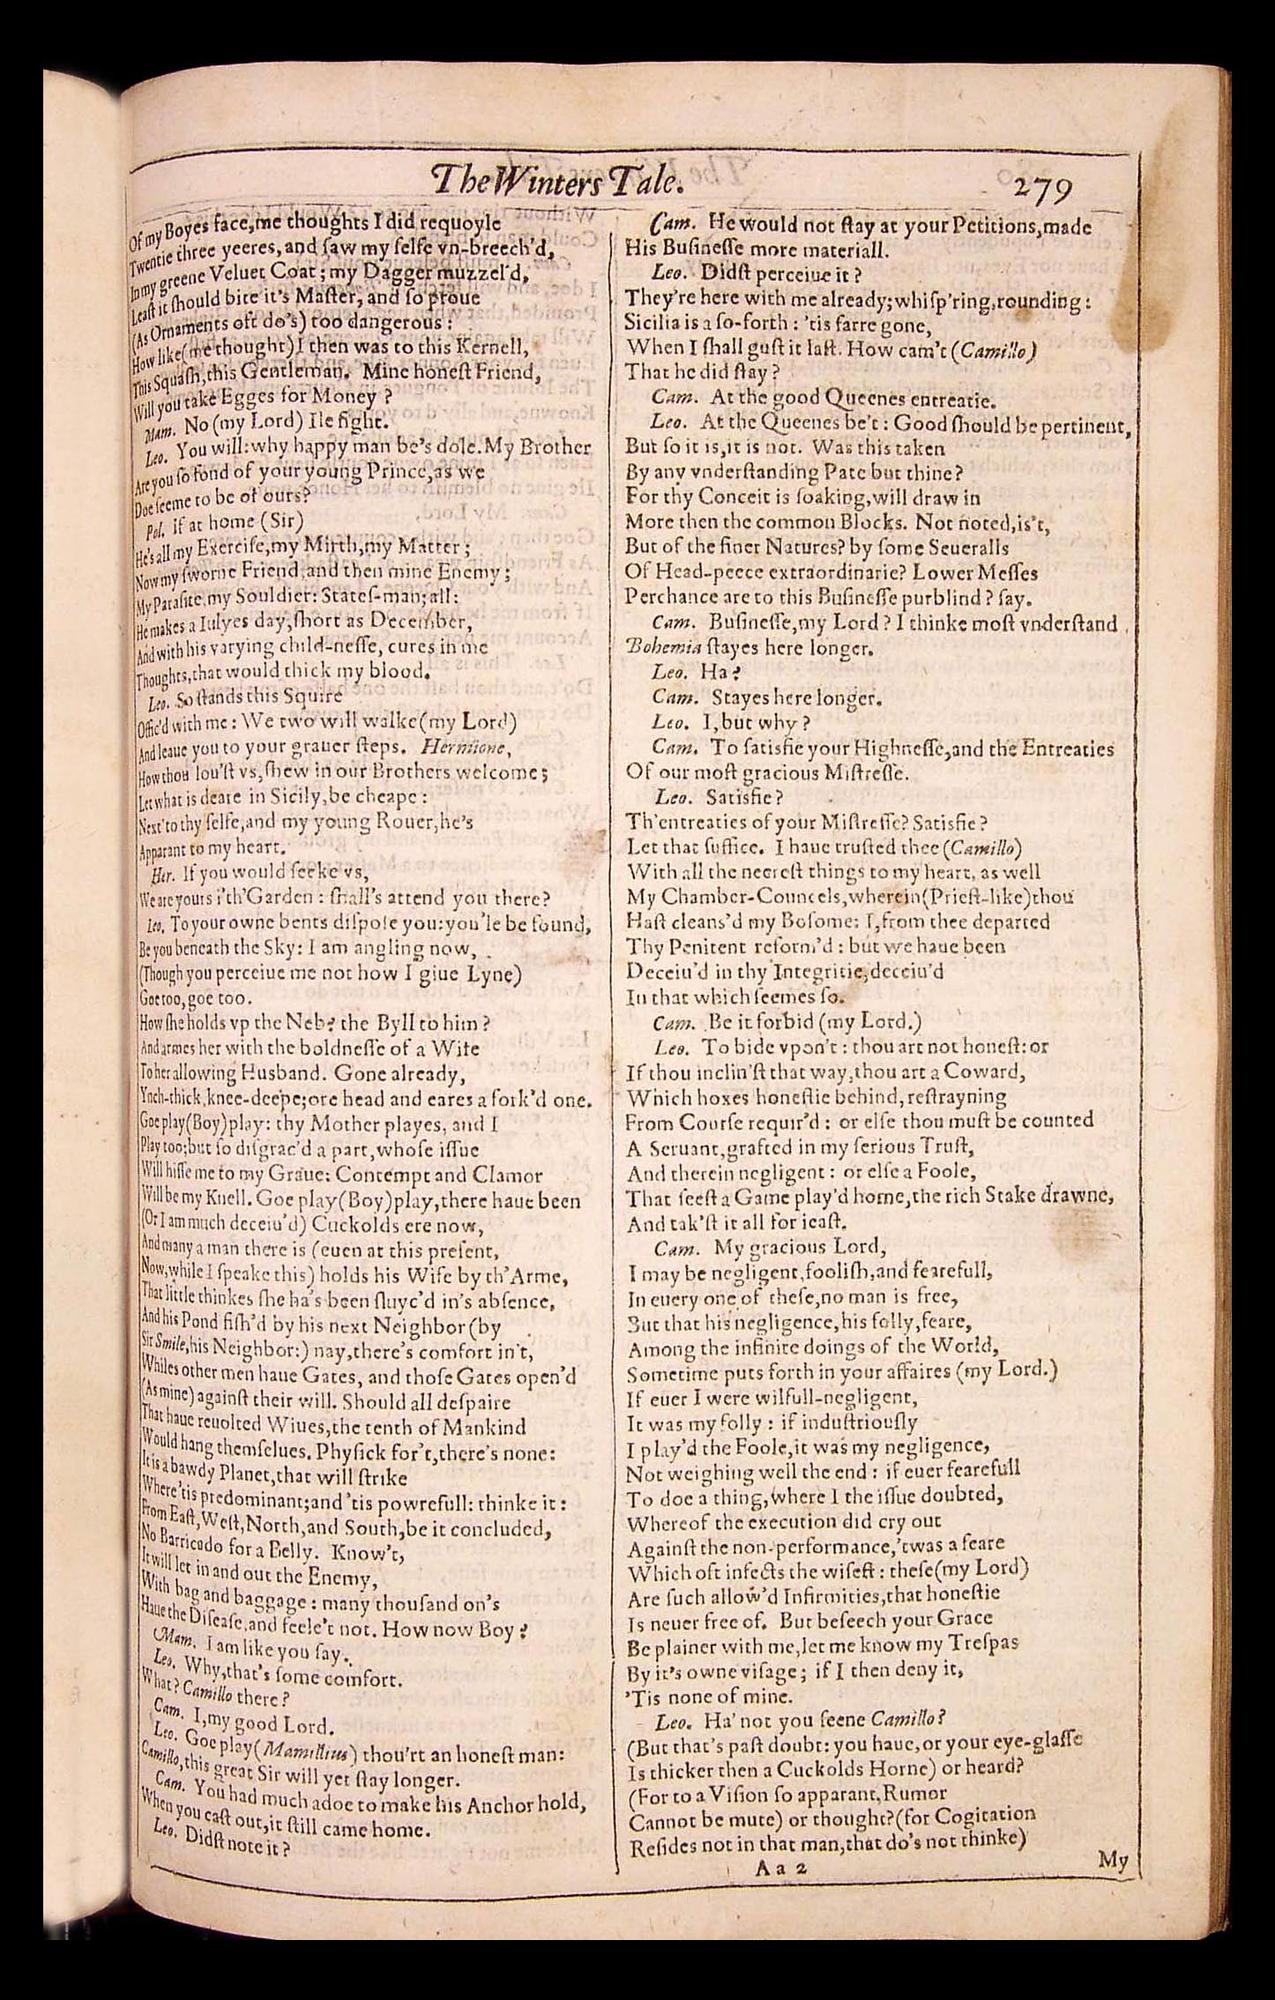 The Winters Tale.
279
Of my Boyes face, me thoughts I did requoyle
Twentie three yeeres, and saw my selfe vn-breech'd,
In my greene Veluet Coat; my Dagger muzzel'd,
Least it should bite it's Master, and so proue
(As Ornaments oft do's) too dangerous:
How like (me thought) I then was to this Kernell,
This Squash, this Gentleman. Mine honest Friend,
Will you take Egges for Money?
Mam. No (my Lord) Ile fight.
Leo. You will: why happy man be's dole. My Brother
Are you so fond of your young Prince, as we
Doe seeme to be of ours?
Pol. If at home (Sir)
He's all my Exercise, my Mirth, my Matter;
Now my sworne Friend, and then mine Enemy;
My Parasite, my Souldier: States-man; all:
He makes a Iulyes day, short as December,
And with his varying child-nesse, cures in me
Thoughts, that would thick my blood.
Leo. So stands this Squire
Offic'd with me: We two will walke (my Lord)
And leaue you to your grauer steps. Hermione,
How thou lou'st vs, shew in our Brothers welcome;
Let what is deare in Sicily, be cheape:
Next to thy selfe, and my young Rouer, he's
Apparant to my heart.
Her. If you would seeke vs,
We are yours i'th'Garden: shall's attend you there?
Leo. To your owne bents dispose you: you'le be found,
Be you beneath the Sky: I am angling now,
(Though you perceiue me not how I giue Lyne)
Goe too, goe too.
How she holds vp the Neb? the Byll to him?
And armes her with the boldnesse of a Wife
To her allowing Husband. Gone already,
Ynch-thick, knee-deepe; ore head and eares a fork'd one.
Goe play (Boy) play: thy Mother playes, and I
Play too; but so disgrac'd a part, whose issue
Will hisse me to my Graue: Contempt and Clamor
Will be my Knell. Goe play (Boy) play, there haue been
(Or I am much deceiu'd) Cuckolds ere now,
And many a man there is (euen at this present,
Now, while I speake this) holds his Wife by th'Arme,
That little thinkes she ha's been sluyc'd in's absence,
And his Pond fish'd by his next Neighbor (by
Sir Smile, his Neighbor:) nay, there's comfort in't,
Whiles other men haue Gates, and those Gates open'd
(As mine) against their will. Should all despaire
That haue reuolted Wiues, the tenth of Mankind
Would hang themselues. Physick for't, there's none:
It is a bawdy Planet, that will strike
Where 'tis predominant; and 'tis powrefull: thinke it:
From East, West, North, and South, be it concluded,
No Barricado for a Belly. Know't,
It will let in and out the Enemy,
With bag and baggage: many thousand on's
Haue the Disease, and feele't not. How now Boy?
Mam. I am like you say.
Leo. Why, that's some comfort.
What? Camillo there?
Cam. I, my good Lord.
Leo. Goe play (Mamillius) thou'rt an honest man:
Camillo, this great Sir will yet stay longer.
Cam. You had much adoe to make his Anchor hold,
When you cast out, it still came home.
Leo. Didst note it?
Cam. He would not stay at your Petitions, made
His Businesse more materiall.
Leo. Didst perceiue it?
They're here with me already; whisp'ring, rounding:
Sicilia is a so-forth: 'tis farre gone,
When I shall gust it last. How cam't (Camillo)
That he did stay?
Cam. At the good Queenes entreatie.
Leo. At the Queenes be't: Good should be pertinent,
But so it is, it is not. Was this taken
By any vnderstanding Pate but thine?
For thy Conceit is soaking, will draw in
More then the common Blocks. Not noted, is't,
But of the finer Natures? by some Seueralls
Of Head-peece extraordinarie? Lower Messes
Perchance are to this Businesse purblind? say.
Cam. Businesse, my Lord? I thinke most vnderstand
Bohemia stayes here longer.
Leo. Ha?
Cam. Stayes here longer.
Leo. I, but why?
Cam. To satisfie your Highnesse, and the Entreaties
Of our most gracious Mistresse.
Leo. Satisfie?
Th'entreaties of your Mistresse? Satisfie?
Let that suffice. I haue trusted thee (Camillo)
With all the neerest things to my heart, as well
My Chamber-Councels, wherein (Priest-like) thou
Hast cleans'd my Bosome: I, from thee departed
Thy Penitent reform'd: but we haue been
Deceiu'd in thy Integritie, deceiu'd
In that which seemes so.
Cam. Be it forbid (my Lord.)
Leo. To bide vpon't: thou art not honest: or
If thou inclin'st that way, thou art a Coward,
Which hoxes honestie behind, restrayning
From Course requir'd: or else thou must be counted
A Seruant, grafted in my serious Trust,
And therein negligent: or else a Foole,
That seest a Game play'd home, the rich Stake drawne,
And tak'st it all for ieast.
Cam. My gracious Lord,
I may be negligent, foolish, and fearefull,
In euery one of these, no man is free,
But that his negligence, his folly, feare,
Among the infinite doings of the World,
Sometime puts forth in your affaires (my Lord.)
If euer I were wilfull-negligent,
It was my folly: if industriously
I play'd the Foole, it was my negligence,
Not weighing well the end: if euer fearefull
To doe a thing, where I the issue doubted,
Whereof the execution did cry out
Against the non-performance, 'twas a feare
Which oft infects the wisest: these (my Lord)
Are such allow'd Infirmities, that honestie
Is neuer free of. But beseech your Grace
Be plainer with me, let me know my Trespas
By it's owne visage; if I then deny it,
'Tis none of mine.
Leo. Ha' not you seene Camillo?
(But that's past doubt: you haue, or your eye-glasse
Is thicker then a Cuckolds Horne) or heard?
(For to a Vision so apparant, Rumor
Cannot be mute) or thought? (for Cogitation
Resides not in that man, that do's not thinke)
Aa2
My